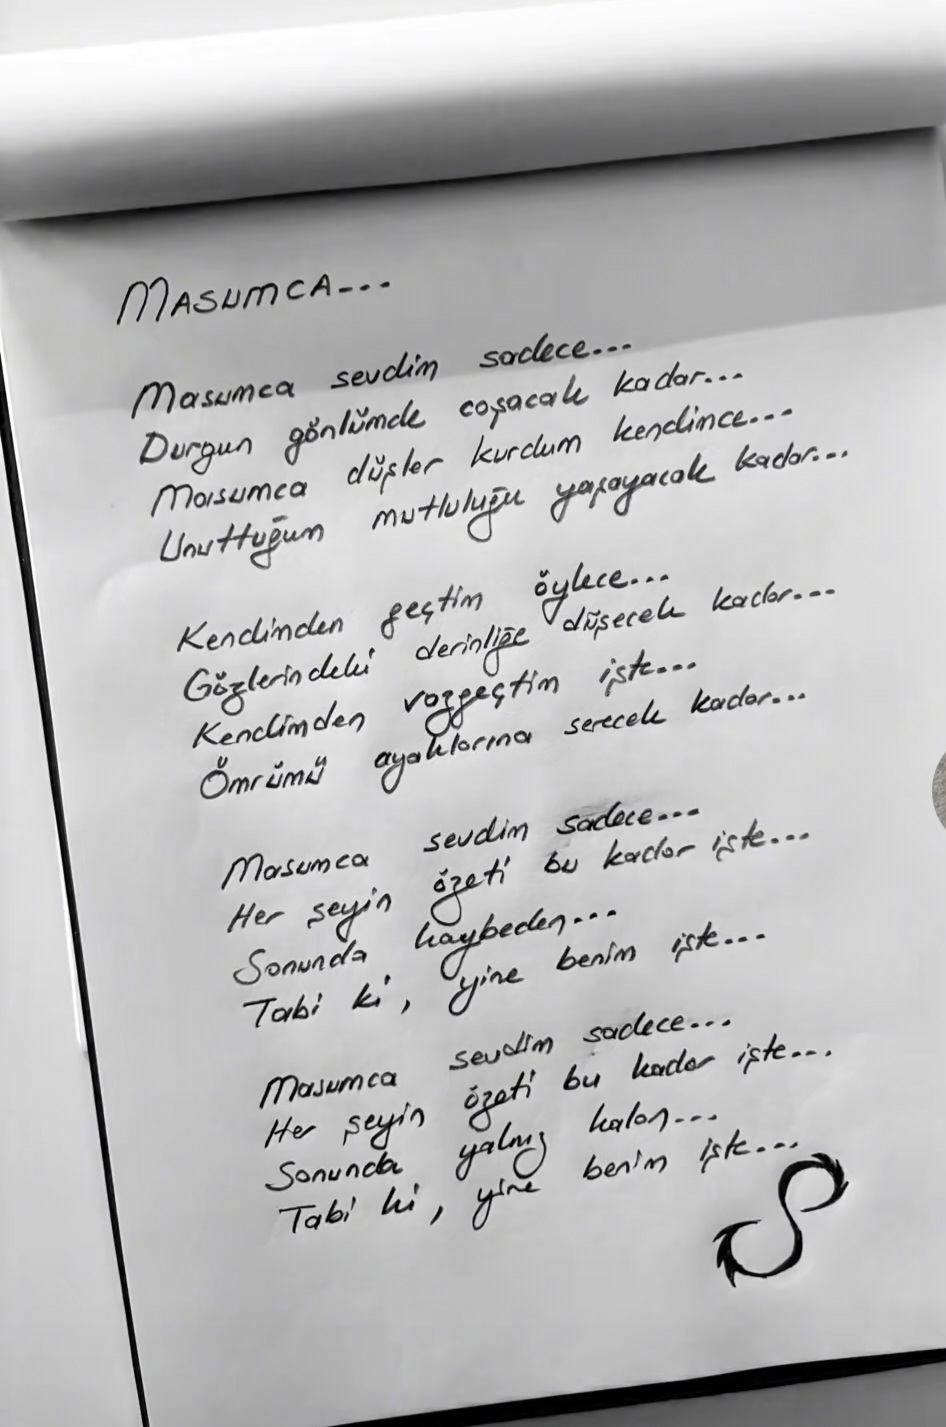 MASUMCA...
Masumca sevdim sadece...
Durgun gönlümde coşacak kadar...
Masumca düşler kurdum kendince...
Unuttuğum mutluluğu yaşayacak kadar...
Kendimden geçtim öylece...
Gözlerindeki derinliğe düşecek kadar...
Kendimden vazgeçtim işte...
Ömrümü ayaklarına serecek kadar...
Masumca sevdim sadece...
Her şeyin özeti bu kadar işte...
Sonunda kaybeden...
Tabi ki, yine benim işte...
Masumca sevdim sadece...
Her şeyin özeti bu kadar işte...
Sonunda yalnız kalan...
Tabi ki, yine benim işte...
S